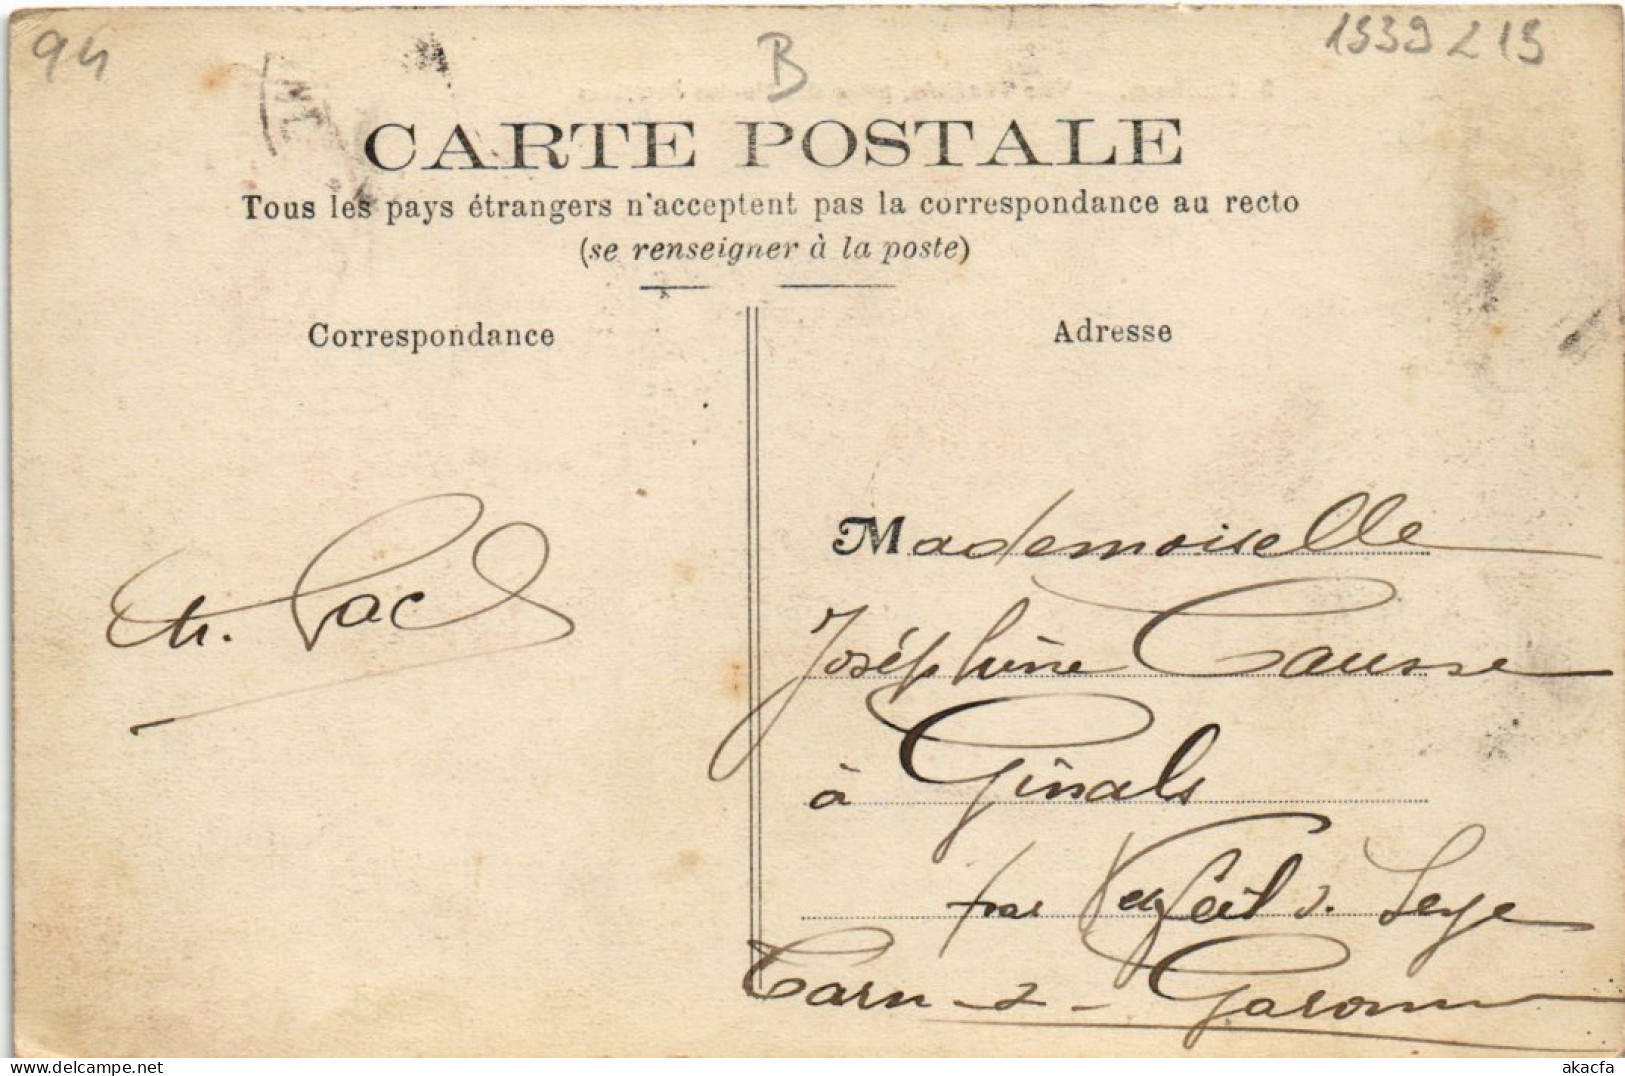 94
B
1539219
CARTE POSTALE
Tous les pays étrangers n'acceptent pas la correspondance au recto
(se renseigner à la poste)
Correspondance
Adresse
Mademoiselle
Joséphine Causse
à Ginals
par Verfeil s. Seye
Tarn-&-Garonne
akacfa